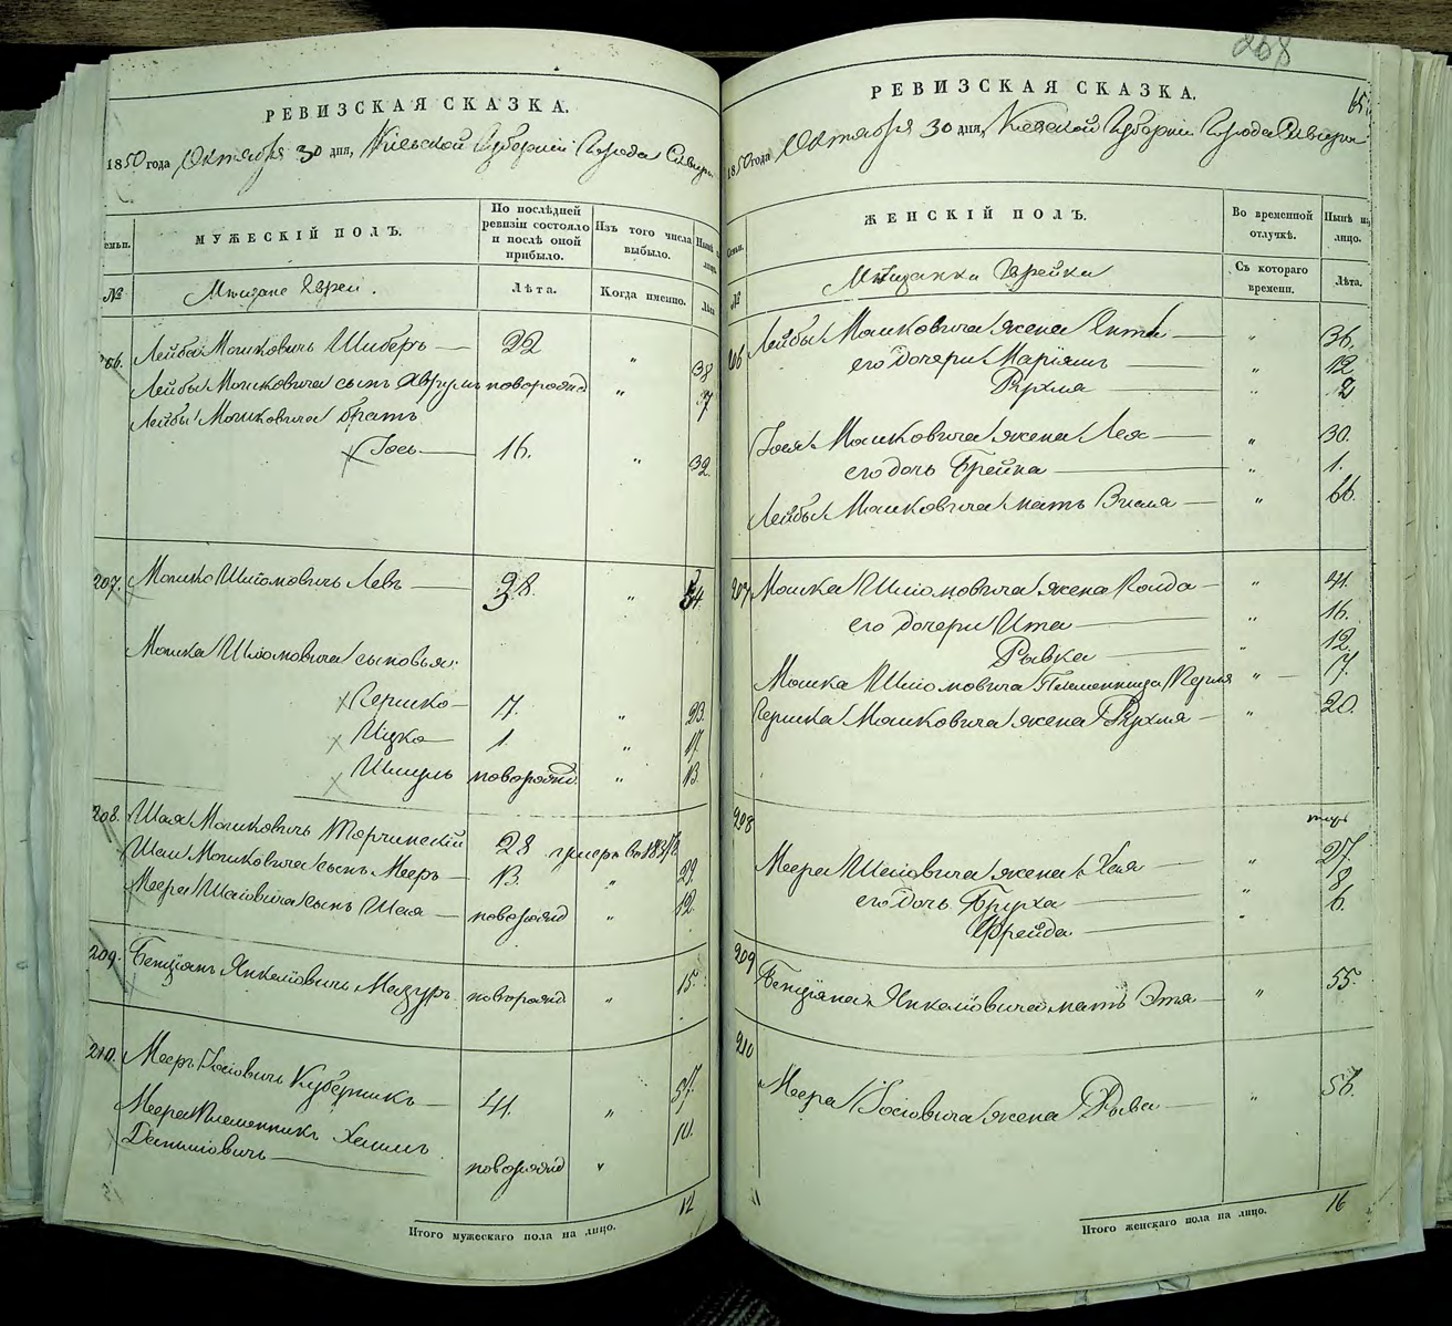 РЕВИЗСКАЯ СКАЗКА.
1850 года Октября 30 дня, Кіевской Губерніи Города Сквиры
семьи.
МУЖЕСКІЙ ПОЛЪ.
По послѣдней ревизіи состояло и послѣ оной прибыло.
Изъ того числа выбыло.
№
Мѣщане Евреи.
Лѣта.
Когда именно.
Лѣта
Лейба Мошковичъ Шиберъ — 22 " 38
Лейбы Мошковича сынъ Аврумъ новорожд " 7
Лейбы Мошковича братъ
Іось — 16. " 32
207. Мошко Шліомовичъ Левъ — 38. " 54.
Мошка Шліомовича сыновья:
Гершко — 7. " 23.
Ицко — 1. " 17.
Шмуль новорожд. " 13.
208. Шая Мошковичъ Торчинскій 28 умеръ въ
Шаи Мошковича сынъ Мееръ — 13. " 29.
Меера Шаіовича сынъ Шая — новорожд " 12.
209. Бенціянъ Янкеліовичъ Мазуръ новорожд " 15.
210. Мееръ Іосіовичъ Куберникъ — 41. " 57.
Меера племенникъ Хаимъ 10.
Даниліовичъ — новорожд "
Итого мужескаго пола на лицо. 12
208
РЕВИЗСКАЯ СКАЗКА.
65
1850 года Октября 30 дня, Кіевской Губерніи Города Сквиры
Семьи.
ЖЕНСКІЙ ПОЛЪ.
Во временной отлучкѣ.
Нынѣ на лицо.
№
Мѣщанки Еврейки
Съ котораго времени.
Лѣта.
Лейбы Мошковича жена Ента — " 36.
его дочери Маріямъ — " 12
Рухля — " 2
Іося Мошковича жена Лея — " 30.
его дочь Брейна — " 1.
Лейбы Мошковича мать — " 66.
207 Мошка Шліомовича жена — " 41.
его дочери Ита — " 16.
Рывка — " 12.
Мошка Шліомовича Племенница Перля " — 7.
Гершка Мошковича жена Рухля — " 20.
208
Меера Шаіовича жена Хая — " 27.
его дочь Брухa — " 8
Фрейда — " 6.
209 Бенціяна Янкеліовича мать Этя — " 55.
210
Меера Іосіовича жена Рыва — " 56.
Итого женскаго пола на лицо. 16